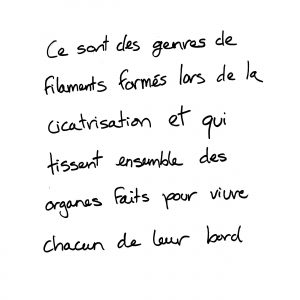 Ce sont des genres de
filaments formés lors de la
cicatrisation et qui
tissent ensemble des
organes faits pour vivre
chacun de leur bord